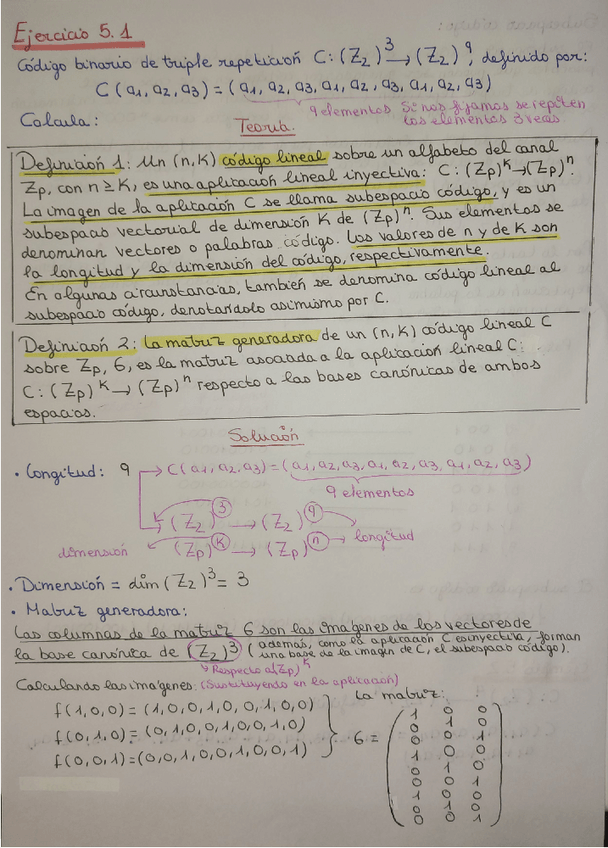 Ejercicio 5.1
Código binario de triple repetición C: (Z₂)³ → (Z₂)⁹, definido por:
C(a1, a2, a3) = (a1, a2, a3, a1, a2, a3, a1, a2, a3)
9 elementos Si nos fijamos se repiten
los elementos 3 veces
Calcula:
Teoría.
Definición 1: Un (n,k) código lineal sobre un alfabeto del canal
Zp, con n ≥ k, es una aplicación lineal inyectiva: C: (Zp)ᵏ → (Zp)ⁿ.
La imagen de la aplicación C se llama subespacio código, y es un
subespacio vectorial de dimensión k de (Zp)ⁿ. Sus elementos se
denominan vectores o palabras código. Los valores de n y de k son
la longitud y la dimensión del código, respectivamente.
En algunas circunstancias, también se denomina código lineal al
subespacio código, denotándolo asimismo por C.
Definición 2: La matriz generadora de un (n,k) código lineal C
sobre Zp, G, es la matriz asociada a la aplicación lineal C:
C: (Zp)ᵏ → (Zp)ⁿ respecto a las bases canónicas de ambos
espacios.
Solución
• Longitud: 9 → C(a1, a2, a3) = (a1, a2, a3, a1, a2, a3, a1, a2, a3)
9 elementos
(Z₂)³ → (Z₂)⁹
dimensión (Zp)ᵏ → (Zp)ⁿ → longitud
• Dimensión = dim (Z₂)³ = 3
• Matriz generadora:
Las columnas de la matriz G son las imágenes de los vectores de
la base canónica de (Z₂)³ (además, como la aplicación C es inyectiva, forman
una base de la imagen de C, el subespacio código).
↳ Respecto a (Zp)ᵏ
Calculando las imágenes: (Sustituyendo en la aplicación)
La matriz:
f(1,0,0) = (1,0,0,1,0,0,1,0,0)
f(0,1,0) = (0,1,0,0,1,0,0,1,0)
f(0,0,1) = (0,0,1,0,0,1,0,0,1)
G =
1 0 0
0 1 0
0 0 1
1 0 0
0 1 0
0 0 1
1 0 0
0 1 0
0 0 1